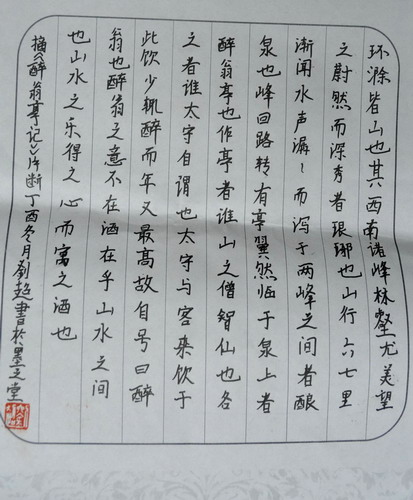 环滁皆山也其西南诸峰林壑尤美望
之蔚然而深秀者琅琊也山行六七里
渐闻水声潺々而泻于两峰之间者酿
泉也峰回路转有亭翼然临于泉上者
醉翁亭也作亭者谁山之僧智仙也名
之者谁太守自谓也太守与客来饮于
此饮少辄醉而年又最高故自号曰醉
翁也醉翁之意不在酒在乎山水之间
也山水之乐得之心而寓之酒也
摘《醉翁亭记》片断丁酉冬月刘超書於墨之堂